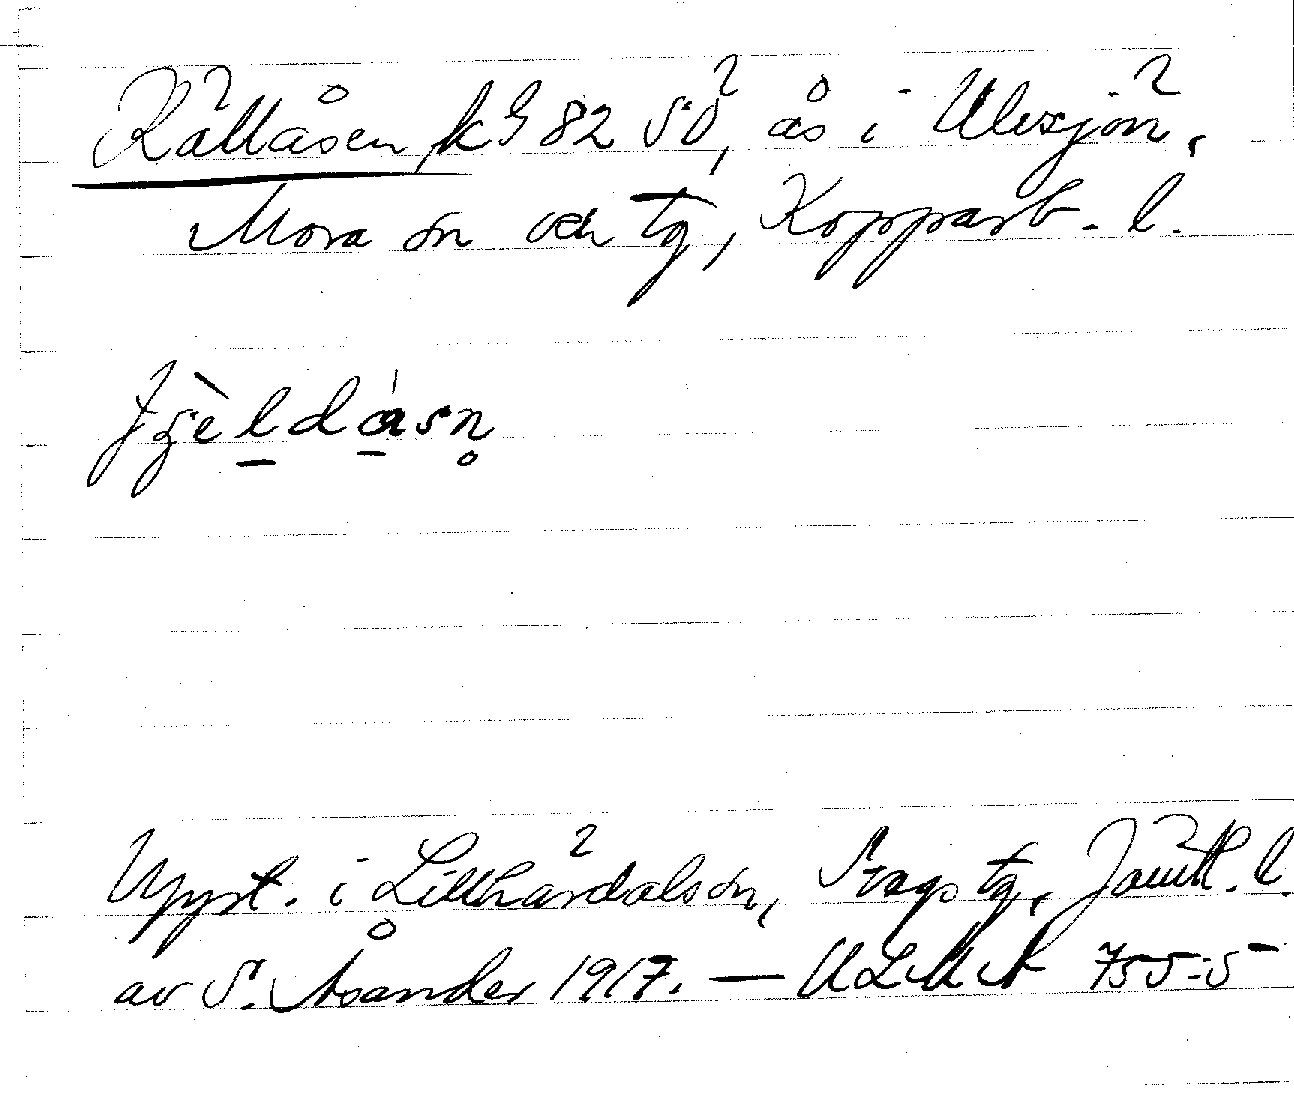 Källåsen, kG 82 SÖ, ås i Älvsjön,
Mora sn och tg, Kopparb. l.
Uppt. i Lillhärdals sn, Svegs tg, Jämtl. l.
av S. Åsander 1917. — ULMA 755:5